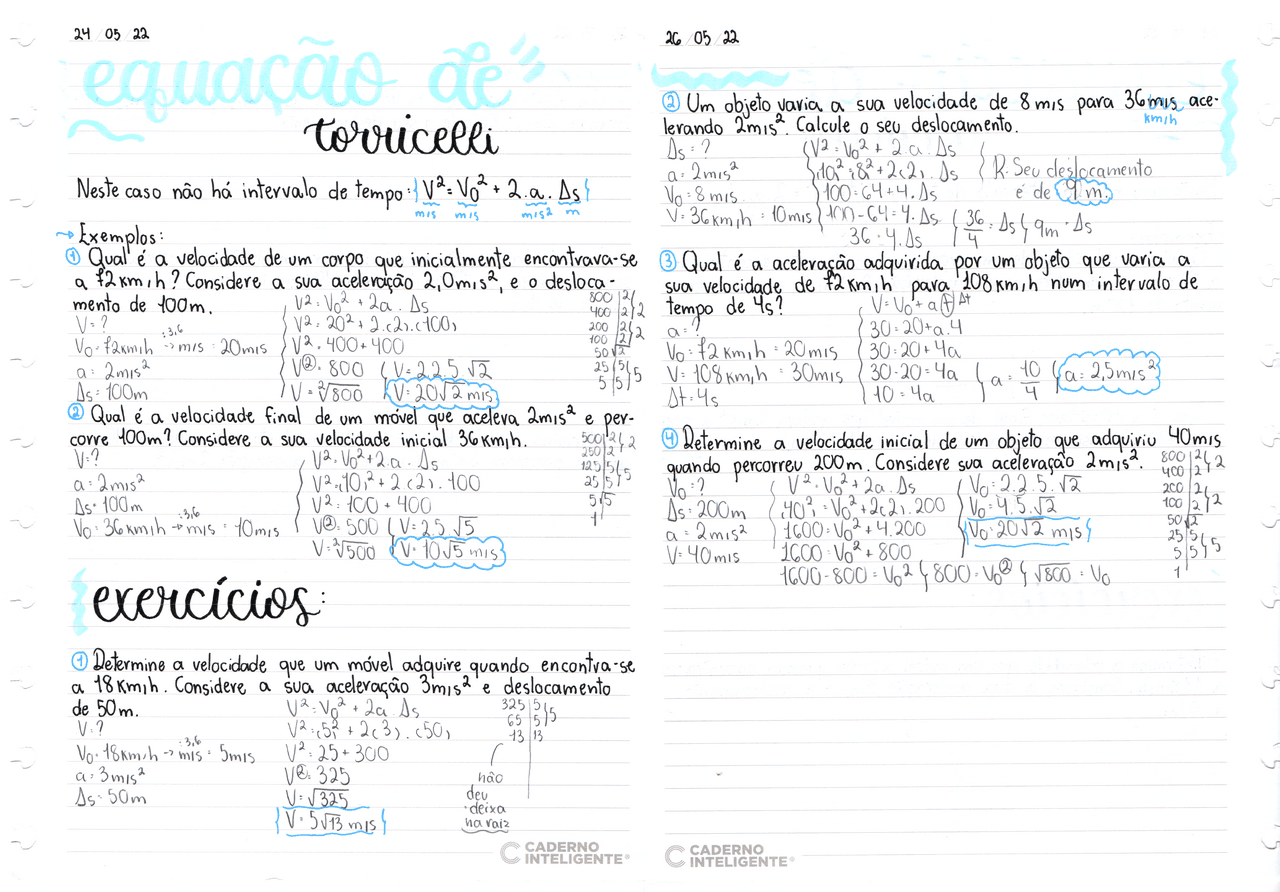 24/05/22
equação de
torricelli
Neste caso não há intervalo de tempo: V² = V₀² + 2.a.Δs
m/s m/s m/s² m
→ Exemplos:
① Qual é a velocidade de um corpo que inicialmente encontrava-se
a 72km/h? Considere a sua aceleração 2,0m/s², e o desloca-
mento de 100m.
V=?
V₀=72km/h → m/s = 20m/s
:3,6
a=2m/s²
Δs=100m
V²=V₀²+2a.Δs
V²=20²+2.(2).(100)
V²=400+400
V²=800
V=²√800
V=2.2.5√2
V=20√2 m/s
800|2
400|2 2
200|2
100|2 2
50|√2
25|5
5|5 5
② Qual é a velocidade final de um móvel que acelera 2m/s² e per-
corre 100m? Considere a sua velocidade inicial 36km/h.
V=?
a=2m/s²
Δs=100m
V₀=36km/h → m/s = 10m/s
:3,6
V²=V₀²+2.a.Δs
V²=(10)²+2(2).100
V²=100+400
V²=500
V=²√500
V=2.5√5
V=10√5 m/s
500|2
250|2 2
125|5
25|5 5
5|5
1
exercícios:
① Determine a velocidade que um móvel adquire quando encontra-se
a 18km/h. Considere a sua aceleração 3m/s² e deslocamento
de 50m.
V=?
V₀=18km/h → m/s = 5m/s
:3,6
a=3m/s²
Δs=50m
V²=V₀²+2a.Δs
V²=(5)²+2(3).(50)
V²=25+300
V²=325
V=√325
V=5√13 m/s
325|5
65|5 5
13|13
não
deu
·deixa
na raiz
CADERNO
INTELIGENTE®
26/05/22
② Um objeto varia a sua velocidade de 8m/s para 36m/s ace-
km/h
lerando 2m/s². Calcule o seu deslocamento.
Δs=?
a=2m/s²
V₀=8m/s
V=36km/h = 10m/s
V²=V₀²+2.a.Δs
10²=8²+2(2).Δs
100=64+4.Δs
100-64=4.Δs
36=4.Δs
36/4=Δs
9m=Δs
R. Seu deslocamento
é de 9m
③ Qual é a aceleração adquirida por um objeto que varia a
sua velocidade de 72km/h para 108km/h num intervalo de
tempo de 4s?
a=?
V₀=72km/h = 20m/s
V=108km/h = 30m/s
Δt=4s
V=V₀+a.t Δt
30=20+a.4
30=20+4a
30-20=4a
10=4a
a=10/4
a=2,5m/s²
④ Determine a velocidade inicial de um objeto que adquiriu 40m/s
quando percorreu 200m. Considere sua aceleração 2m/s².
V₀=?
Δs=200m
a=2m/s²
V=40m/s
V²=V₀²+2a.Δs
(40)²=V₀²+2(2).200
1600=V₀²+4.200
1600=V₀²+800
1600-800=V₀²
800=V₀²
√800=V₀
V₀=2.2.5.√2
V₀=4.5.√2
V₀=20√2 m/s
800|2
400|2 2
200|2
100|2 2
50|√2
25|5
5|5 5
1
CADERNO
INTELIGENTE®